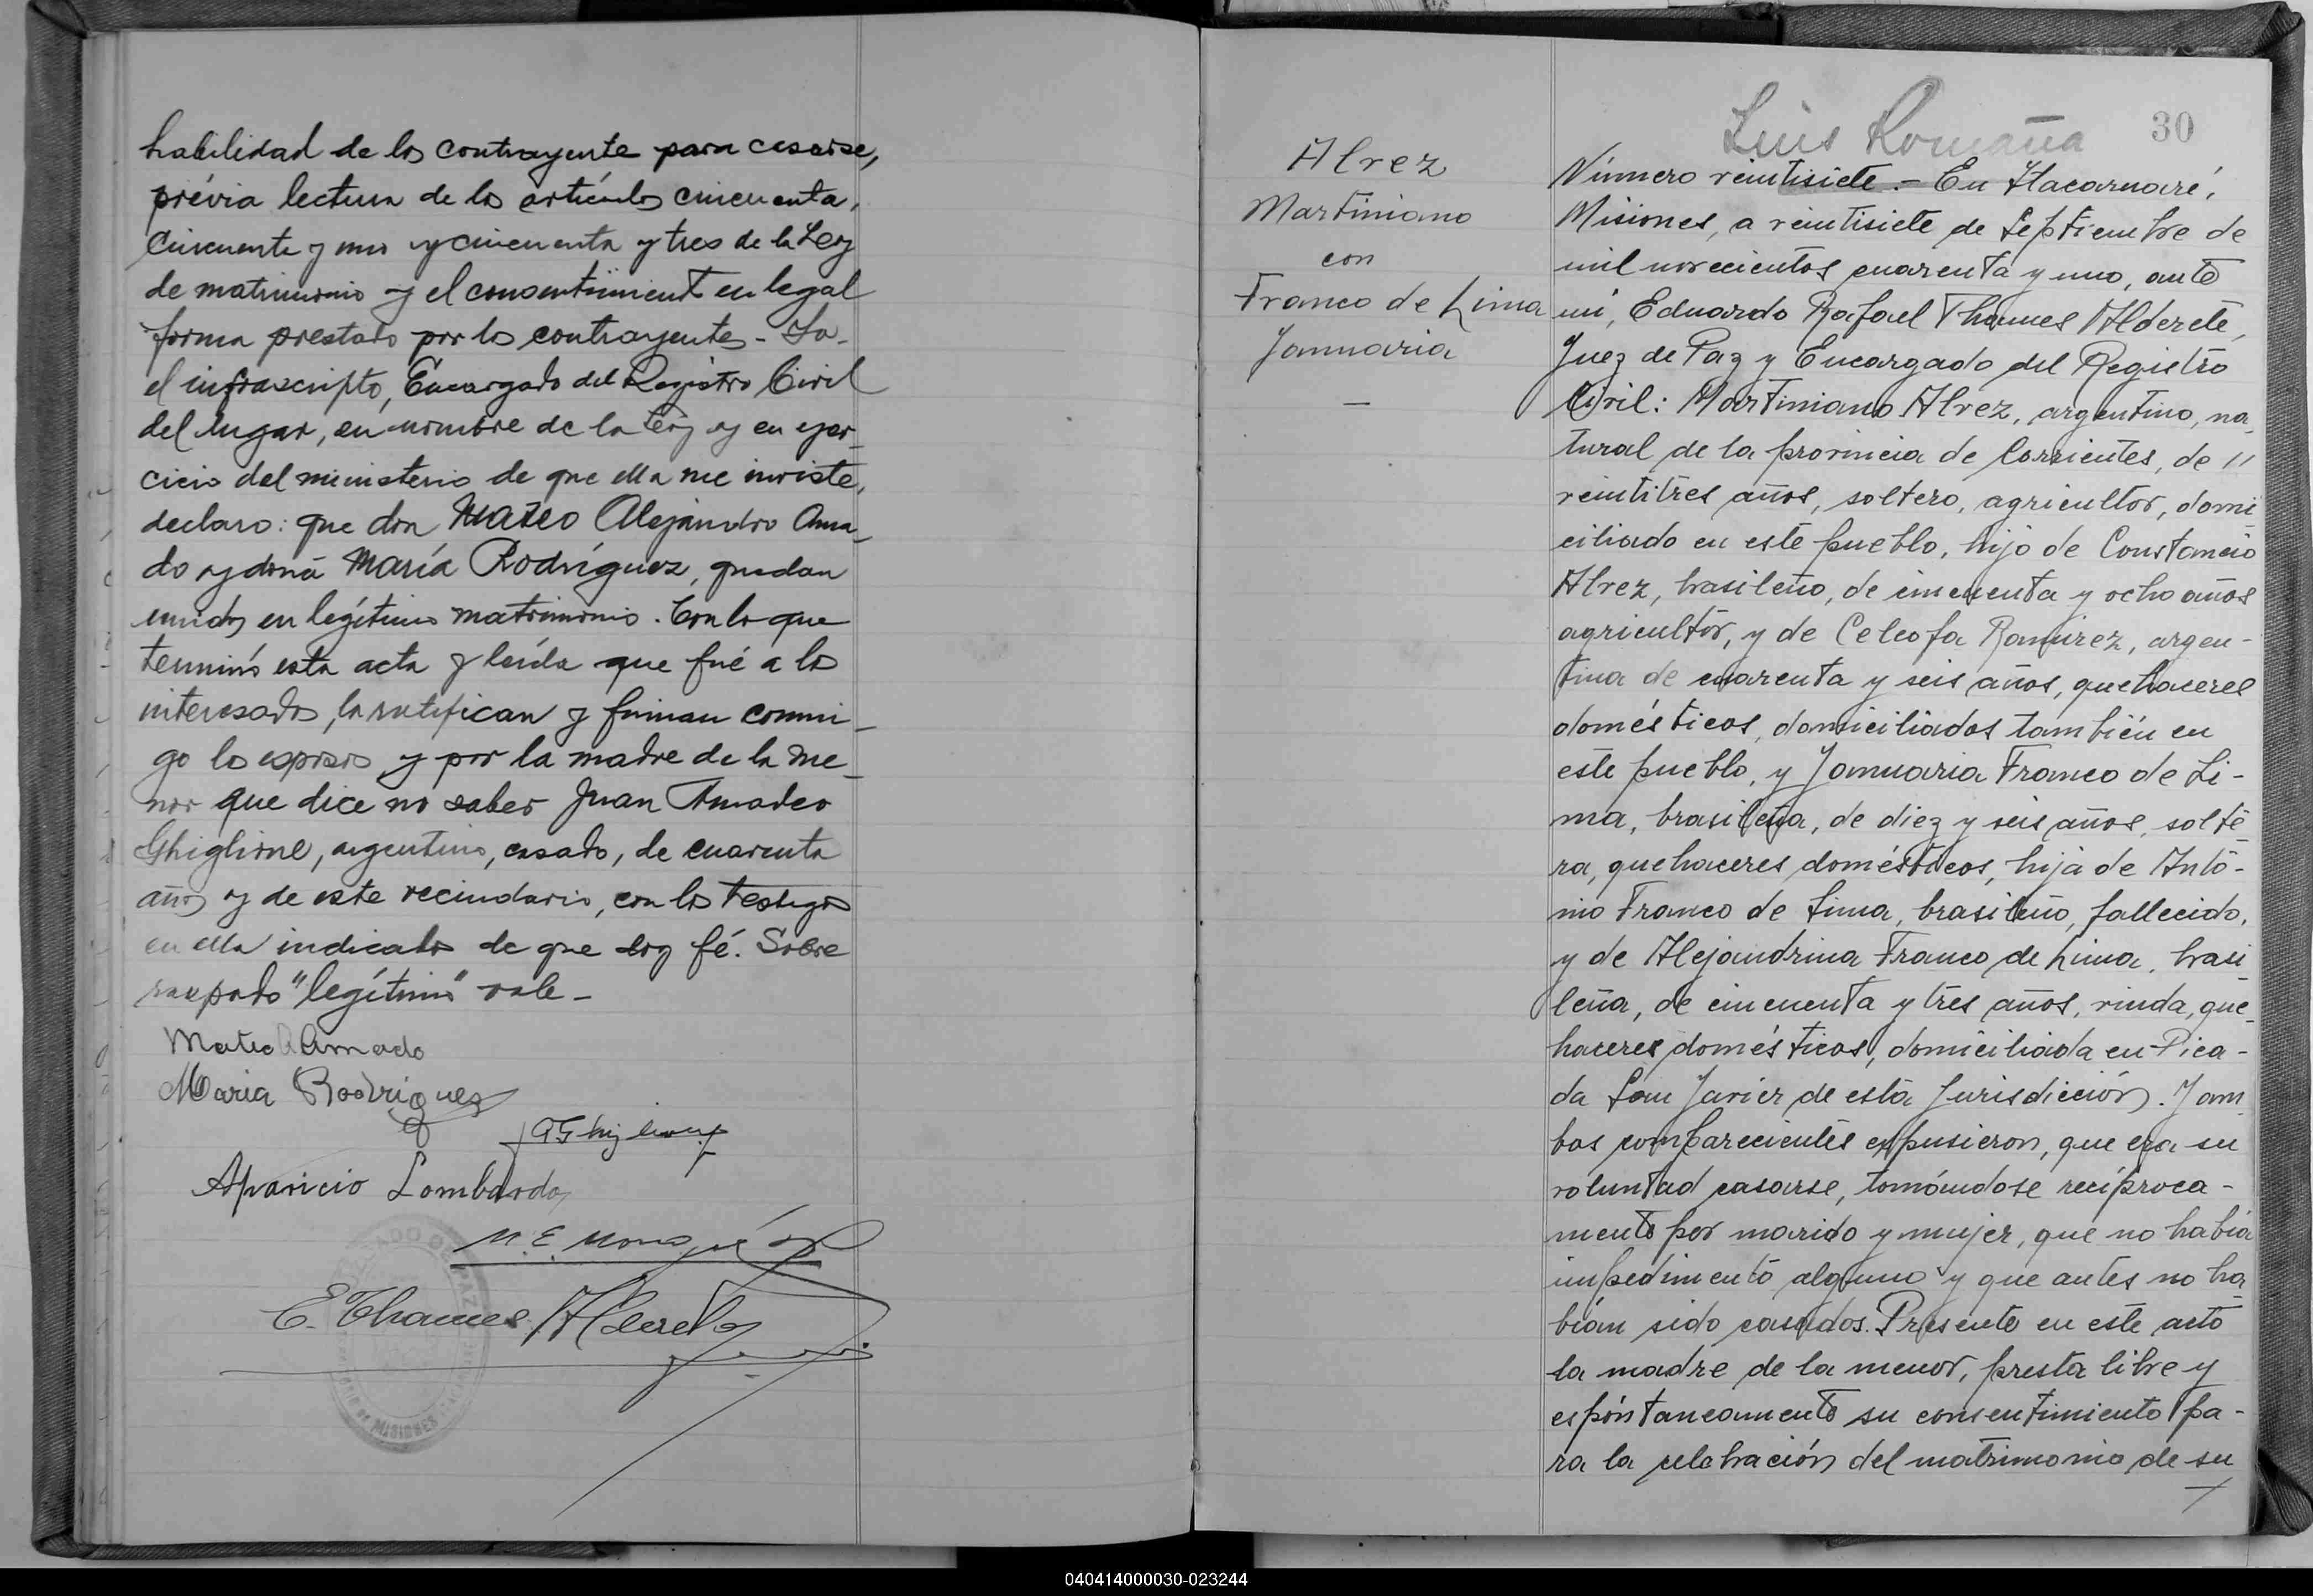 habilidad de los contrayente para casarse,
prévia lectura de los artículos cincuenta,
cincuenta y uno y cincuenta y tres de la Ley
de matrimonio y el consentimient en legal
forma prestado por los contrayentes - Yo-
el infrascripto, Encargado del Registro Civil
del lugar, en nombre de la Ley y en ejer-
cicio del ministerio de que ella me inviste,
declaro: que don Mateo Alejandro Ama-
do y doña María Rodríguez, quedan
unidos en legítimo matrimonio. Con lo que
terminó esta acta y leída que fué a los
interesados, la ratifican y firman conmi-
go los esposos y por la madre de la me-
nor que dice no saber Juan Amadeo
Ghiglione, argentino, casado, de cuarenta
años y de este vecindario, con los testigos
en ella indicados de que doy fé. Sobre
raspado "legítimo" vale-
Mateo A Amado
Maria Rodriguez
Aparicio Lombardo
E. Thames Alderete
Alvez
Martiniano
con
Franco de Lima
Januaria
—
Luis Romaña
30
Número veintisiete.- En Itacaruaré,
Misiones, a veintisiete de Septiembre de
mil novecientos cuarenta y uno, ante
mí, Eduardo Rafael Thames Alderete,
Juez de Paz y Encargado del Registro
Civil: Martiniano Alvez, argentino, na-
tural de la provincia de Corrientes, de "
veintitres años, soltero, agricultor, domi-
ciliado en este pueblo, hijo de Constancio
Alvez, brasileño, de cincuenta y ocho años
agricultor, y de Celeofa Ramirez, argen-
tina de cuarenta y seis años, quehaceres
domésticos, domiciliados también en
este pueblo, y Januaria Franco de Li-
ma, brasileña, de diez y seis años, solte-
ra, quehaceres domésticos, hija de Anto-
nio Franco de Lima, brasileño, fallecido,
y de Alejandrina Franco de Lima, brasi-
leña, de cincuenta y tres años, viuda, que-
haceres domésticos, domiciliada en Pica-
da San Javier de esta Jurisdicción. Y am-
bos comparecientes expusieron, que era su
voluntad casarse, tomándose recíproca-
mente por marido y mujer, que no había
impedimento alguno y que antes no ha-
bían sido casados. Presente en este acto
la madre de la menor, presta libre y
espóntaneamente su consentimiento pa-
ra la celebración del matrimonio de su
040414000030-023244